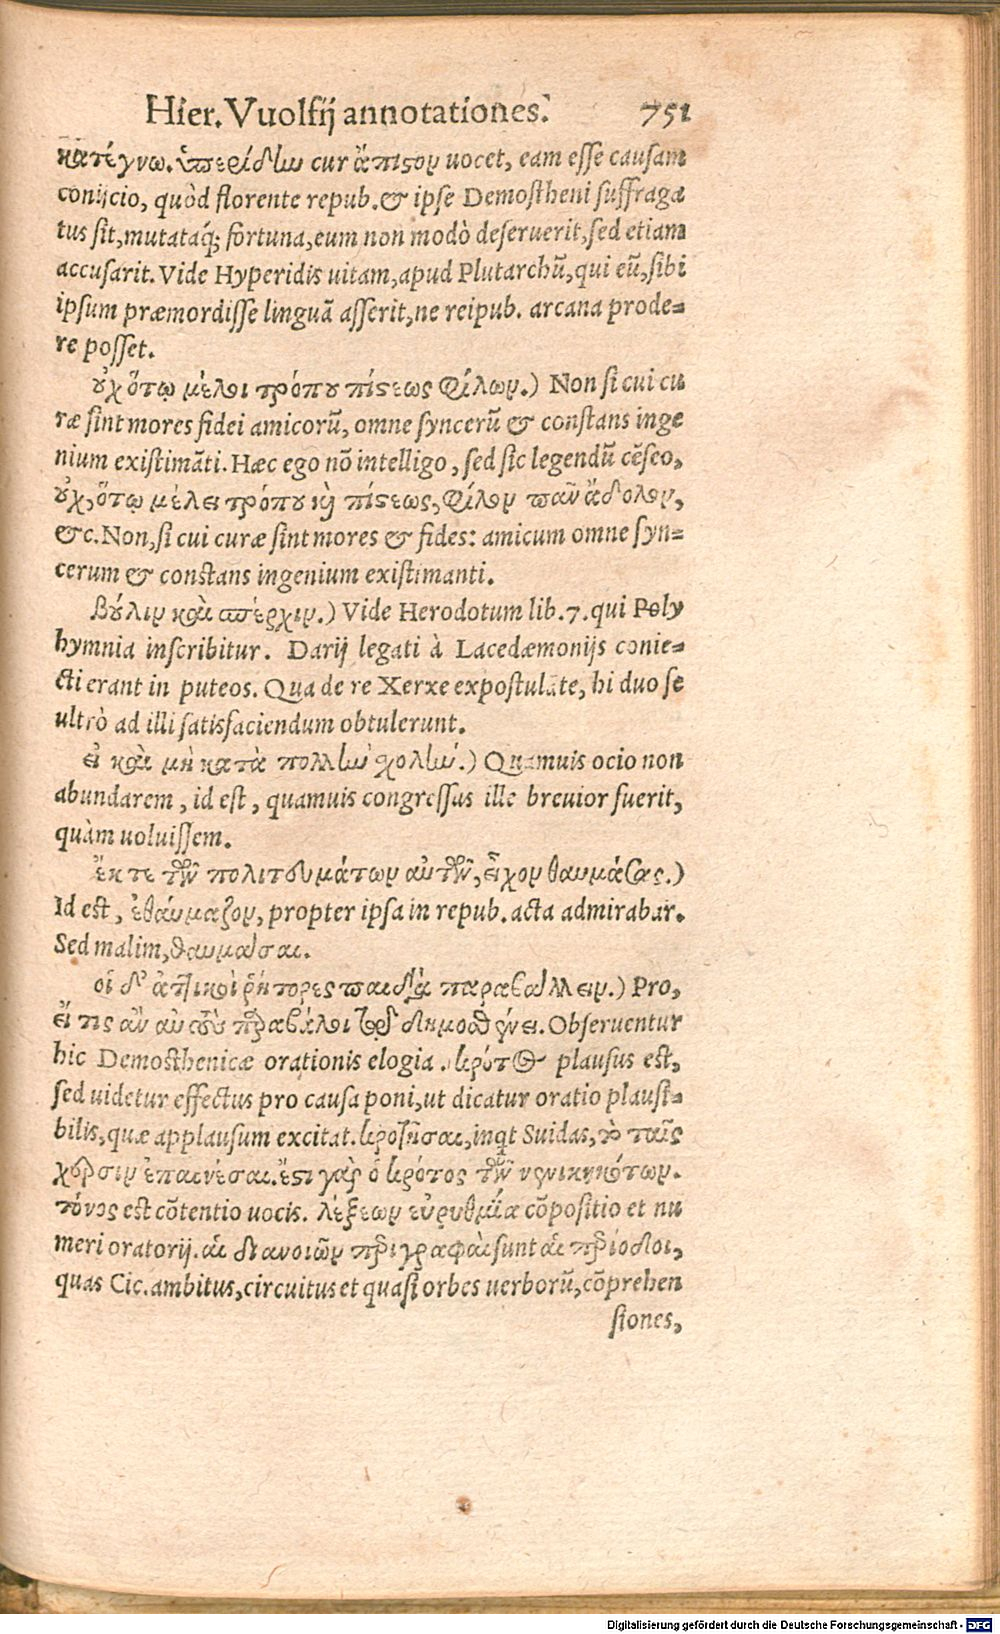 Hier. Vuolfij annotationes. 751
κατέγνω. ὑπερίδην cur ἄπιστον uocet, eam esse causam
conijcio, quòd florente repub. & ipse Demostheni suffraga
tus sit, mutataq́; fortuna, eum non modò deseruerit, sed etiam
accusarit. Vide Hyperidis uitam, apud Plutarchū, qui eū, sibi
ipsum præmordisse linguā asserit, ne reipub. arcana prode=
re posset.
οὐχ ὅτῳ μέλοι τρόπου πίστεως φίλων.) Non si cui cu
ræ sint mores fidei amicorū, omne syncerū & constans inge
nium existimāti. Hæc ego nō intelligo, sed sic legendū cēseo,
οὐχ, ὅτῳ μέλει τρόπου καὶ πίστεως, φίλον πᾶν ἄδολον,
&c. Non, si cui curæ sint mores & fides: amicum omne syn=
cerum & constans ingenium existimanti.
βούλιν καὶ σπέρχιν.) Vide Herodotum lib. 7. qui Poly
hymnia inscribitur. Darij legati à Lacedæmonijs conie=
cti erant in puteos. Qua de re Xerxe expostulāte, hi duo se
ultrò ad illi satisfaciendum obtulerunt.
εἰ καὶ μὴ κατὰ πολλὴν σχολήν.) Quamuis ocio non
abundarem, id est, quamuis congressus ille breuior fuerit,
quàm uoluissem.
ἔκ τε τῶν πολιτευμάτων αὐτῶν, εἶχον θαυμάσας.)
Id est, ἐθαύμαζον, propter ipsa in repub. acta admirabar.
Sed malim, θαυμάσαι.
οἱ δ' ἀττικοὶ ῥήτορες παιδιὰ παραβάλλειν.) Pro,
εἴ τις ἂν αὐτοὺς παραβάλοι τῷ δημοσθένει. Obseruentur
hic Demosthenicæ orationis elogia. κρότος plausus est,
sed uidetur effectus pro causa poni, ut dicatur oratio plausi=
bilis, quæ applausum excitat. κροτῆσαι, inqt Suidas, τὸ ταῖς
χερσὶν ἐπαινέσαι. ἔστι γὰρ ὁ κρότος τῶν νενικηκότων.
τόνος est cōtentio uocis. λέξεων εὐρυθμία cōpositio et nu
meri oratorij. αἱ διανοιῶν περιγραφαὶ sunt αἱ περίοδοι,
quas Cic. ambitus, circuitus et quasi orbes uerborū, cōprehen
siones,
Digitalisierung gefördert durch die Deutsche Forschungsgemeinschaft - DFG